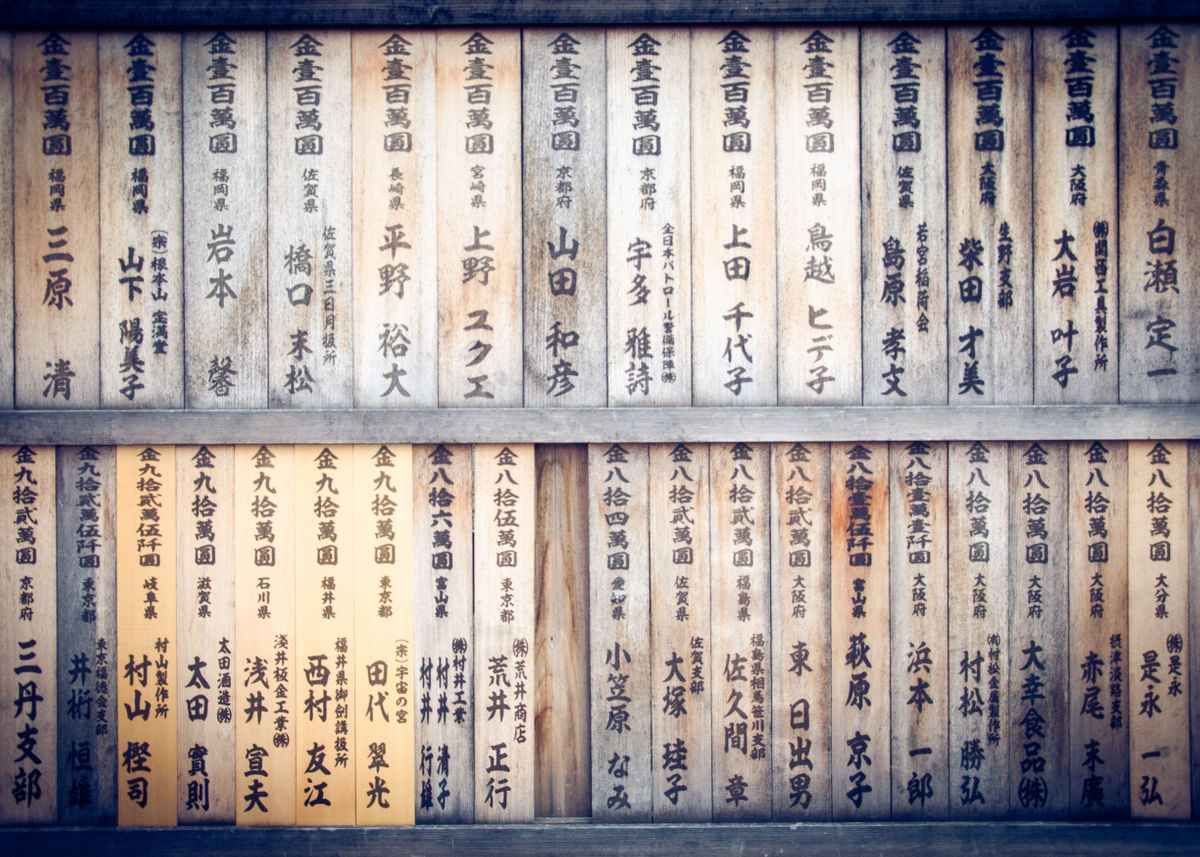 金壹百萬圓 青森県 白瀬 定一
金壹百萬圓 大阪府
㈱関西工具製作所
大岩 叶子
金壹百萬圓 大阪府
生野支部
柴田 才美
金壹百萬圓 佐賀県
若宮稲荷会
島原 孝文
金壹百萬圓 福岡県 鳥越 ヒデ子
金壹百萬圓 福岡県 上田 千代子
金壹百萬圓 京都府
全日本パトロール警備保障㈱
宇多 雅詩
金壹百萬圓 京都府 山田 和彦
金壹百萬圓 宮崎県 上野 ユクエ
金壹百萬圓 長崎県 平野 裕大
金壹百萬圓 佐賀県
佐賀県三日月扱所
橋口 末松
金壹百萬圓 福岡県 岩本 馨
金壹百萬圓 福岡県
(宗)根本山 宝満堂
山下 陽美子
金壹百萬圓 福岡県 三原 清
金八拾萬圓 大分県
㈱是永
是永 一弘
金八拾萬圓 大阪府
摂津淡路支部
赤尾 末廣
金八拾萬圓 大阪府 大幸食品㈱
金八拾萬圓 大阪府
㈲村松金属製作所
村松 勝弘
金八拾壹萬壹阡圓 大阪府 浜本 一郎
金八拾壹萬伍阡圓 富山県 萩原 京子
金八拾貳萬圓 大阪府 東 日出男
金八拾貳萬圓 福島県
福島県相馬笹川支部
佐久間 章
金八拾貳萬圓 佐賀県
佐賀支部
大塚 珪子
金八拾四萬圓 愛知県 小笠原 なみ
金八拾伍萬圓 東京都
㈱荒井商店
荒井 正行
金八拾六萬圓 富山県
㈱村井工業
村井 清子
村井 行雄
金九拾萬圓 東京都
(宗)宇宙の宮
田代 翠光
金九拾萬圓 福井県
福井県御剣講扱所
西村 友江
金九拾萬圓 石川県
浅井板金工業㈱
浅井 宣夫
金九拾萬圓 滋賀県
太田酒造㈱
太田 實則
金九拾貳萬伍阡圓 岐阜県
村山製作所
村山 樫司
金九拾貳萬伍阡圓 東京都
東京福徳会支部
井桁 恒雄
金九拾貳萬圓 京都府 三丹支部